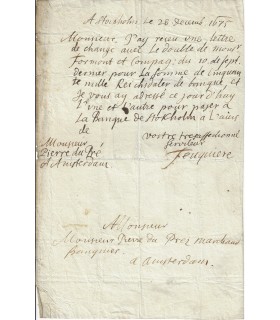 A Stokholm le 28 1675
Monsieur J'ay receu une lettre
de change avec le double de monsr
Formont et Compag; du 10 de sept.
dernier pour la somme de cinquan
te mille Reichsdaler de banque, et
je vous ay adressé ce jour d'huy
l'une et l'autre pour payer à
La Banque de Stokholm
de
vostre tres affectionné
serviteur
Feuquiere
Monsieur
Pierre du Pré
d'Amsterdam
A Monsieur
Monsieur Pierre du Prez marchand
banquier
a Amsterdam.